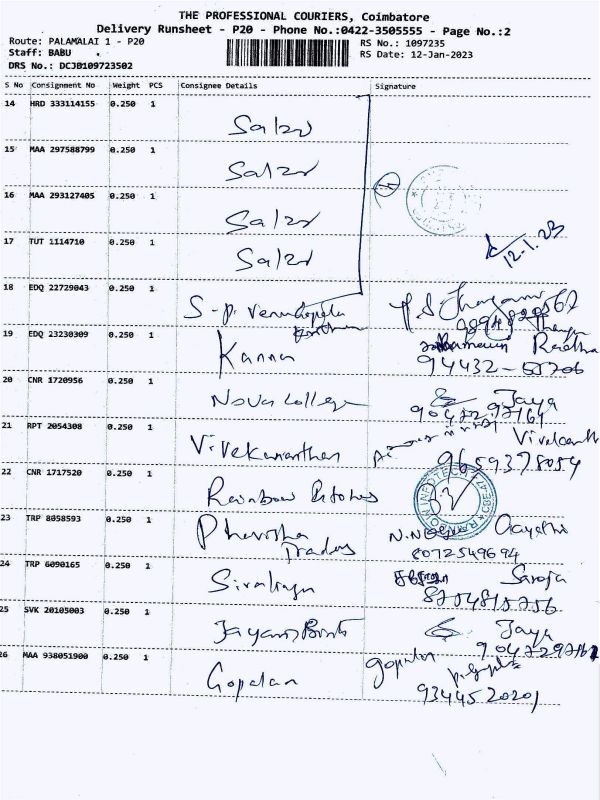 THE PROFESSIONAL COURIERS, Coimbatore
Delivery Runsheet - P20 - Phone No.:0422-3505555 - Page No.:2
Route: PALAMALAI 1 - P20
RS No.: 1097235
Staff: BABU
RS Date: 12-Jan-2023
DRS No.: DCJB109723502
S No Consignment No Weight PCS Consignee Details Signature
14 HRD 333114155 0.250 1
Salzer
15 MAA 297588799 0.250 1
Salzer
16 MAA 293127405 0.250 1
Salzer
4
17 TUT 1114710 0.250 1
Salzer
12.1.23
18 EDQ 22729043 0.250 1
S.P. Venugopala
19 EDQ 23230309 0.250 1
Kanna
Radha
94432-
20 CNR 1720956 0.250 1
Nova College
Jaya
21 RPT 2054308 0.250 1
Vivekananthan
9659378054
22 CNR 1717520 0.250 1
Rainbow
RAINBOW INFOTECH
23 TRP 8058593 0.250 1
Traders
Gayathri
8072549694
24 TRP 6090165 0.250 1
Saroja
8754815756
25 SVK 20105003 0.250 1
Jaya
26 MAA 938051900 0.250 1
Gopalan
gopalan
9344520201